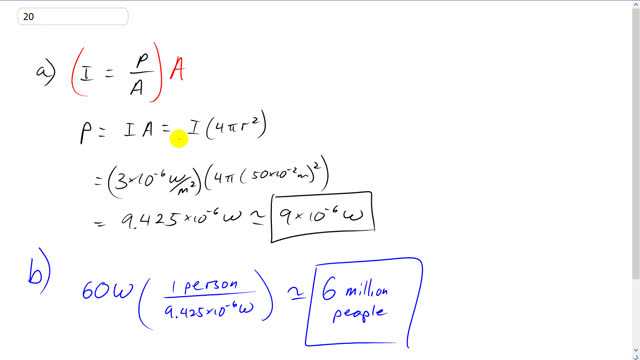 20
a) ( I = P/A ) A
P = I A = I ( 4πr² )
= ( 3×10⁻⁶ W/m² ) ( 4π ( 50×10⁻² m )² )
= 9.425×10⁻⁶ W ≃ 9×10⁻⁶ W
b) 60W ( 1 person / 9.425×10⁻⁶ W ) ≃ 6 million people